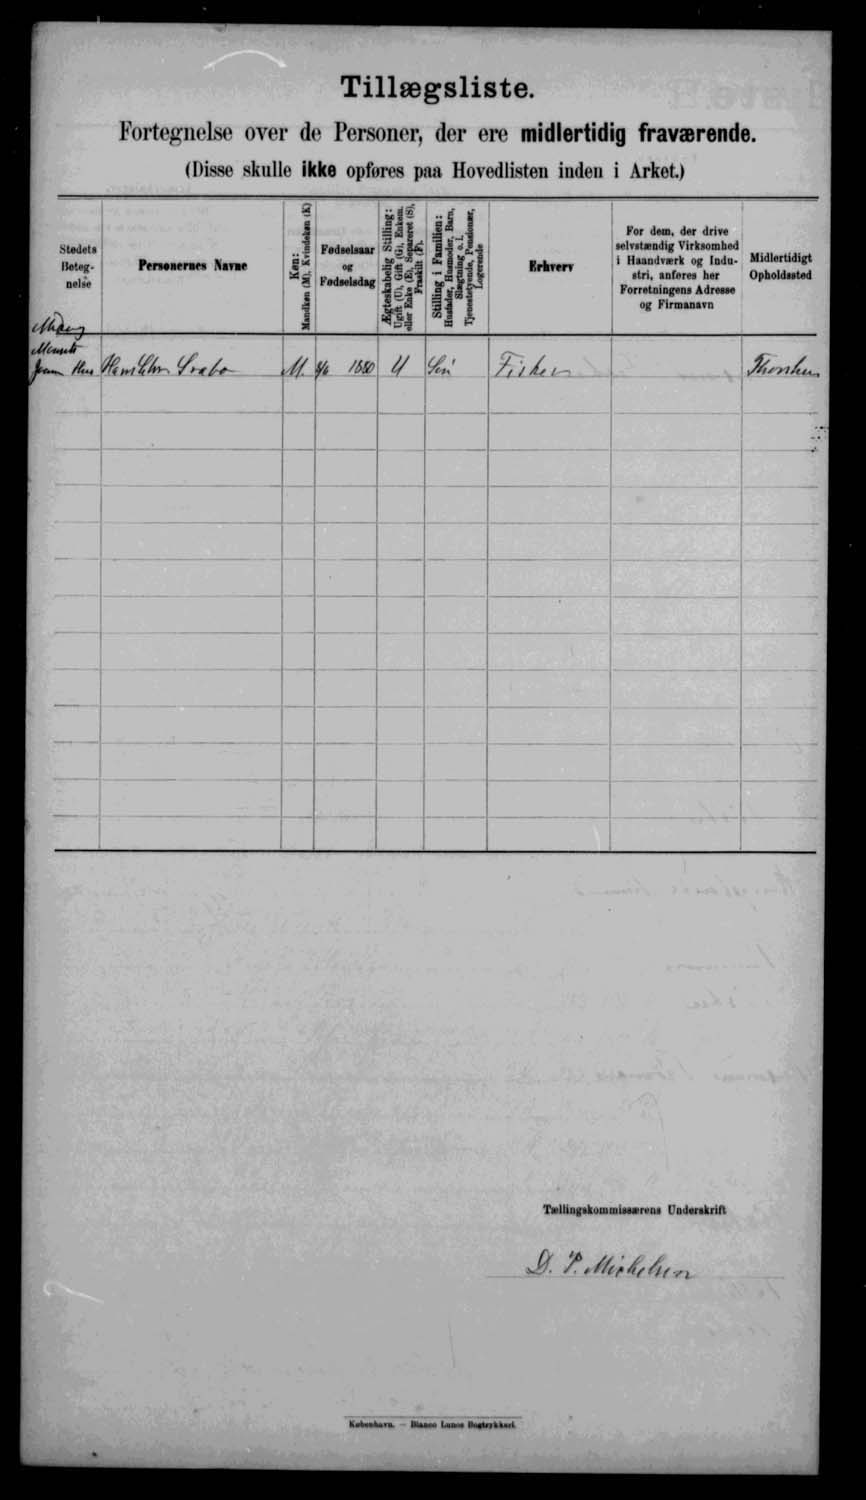 Tillægsliste.
Fortegnelse over de Personer, der ere midlertidig fraværende.
(Disse skulle ikke opføres paa Hovedlisten inden i Arket.)
Stedets
Beteg-
nelse
Personernes Navne
Køn:
Mandkøn (M), Kvindekøn (K)
Fødselsaar
og
Fødselsdag
Ægteskabelig Stilling:
Ugift (U), Gift (G), Enkem.
eller Enke (E), Separeret (S),
Fraskilt (F).
Stilling i Familien:
Husfader, Husmoder, Barn,
Slægtning o. l.
Tjenestetyende, Pensionær,
Logerende
Erhverv
For dem, der drive
selvstændig Virksomhed
i Haandværk og Indu-
stri, anføres her
Forretningens Adresse
og Firmanavn
Midlertidigt
Opholdssted
Hus Svabo M. 1880 U Sön Fisker Thorshn
Tællingskommissærens Underskrift
D. P. Michelsen
København. — Bianco Lunos Bogtrykkeri.